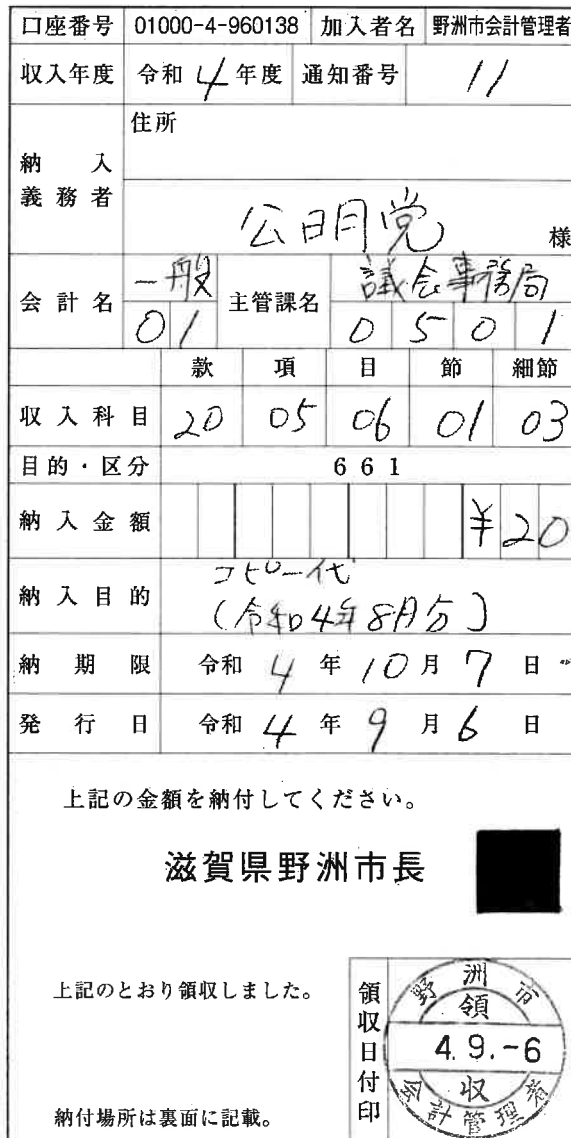 口座番号 01000-4-960138 加入者名 野洲市会計管理者
収入年度 令和 4 年度 通知番号 11
住所
納入義務者
公明党 様
会計名 一般 主管課名 議会事務局
01 0501
款 項 目 節 細節
収入科目 20 05 06 01 03
目的・区分 661
納入金額 ¥20
納入目的 コピー代
(令和4年8月分)
納期限 令和 4 年 10 月 7 日
発行日 令和 4 年 9 月 6 日
上記の金額を納付してください。
滋賀県野洲市長
上記のとおり領収しました。
領収日付印
野洲市
領
4.9.-6
収
会計管理者
納付場所は裏面に記載。